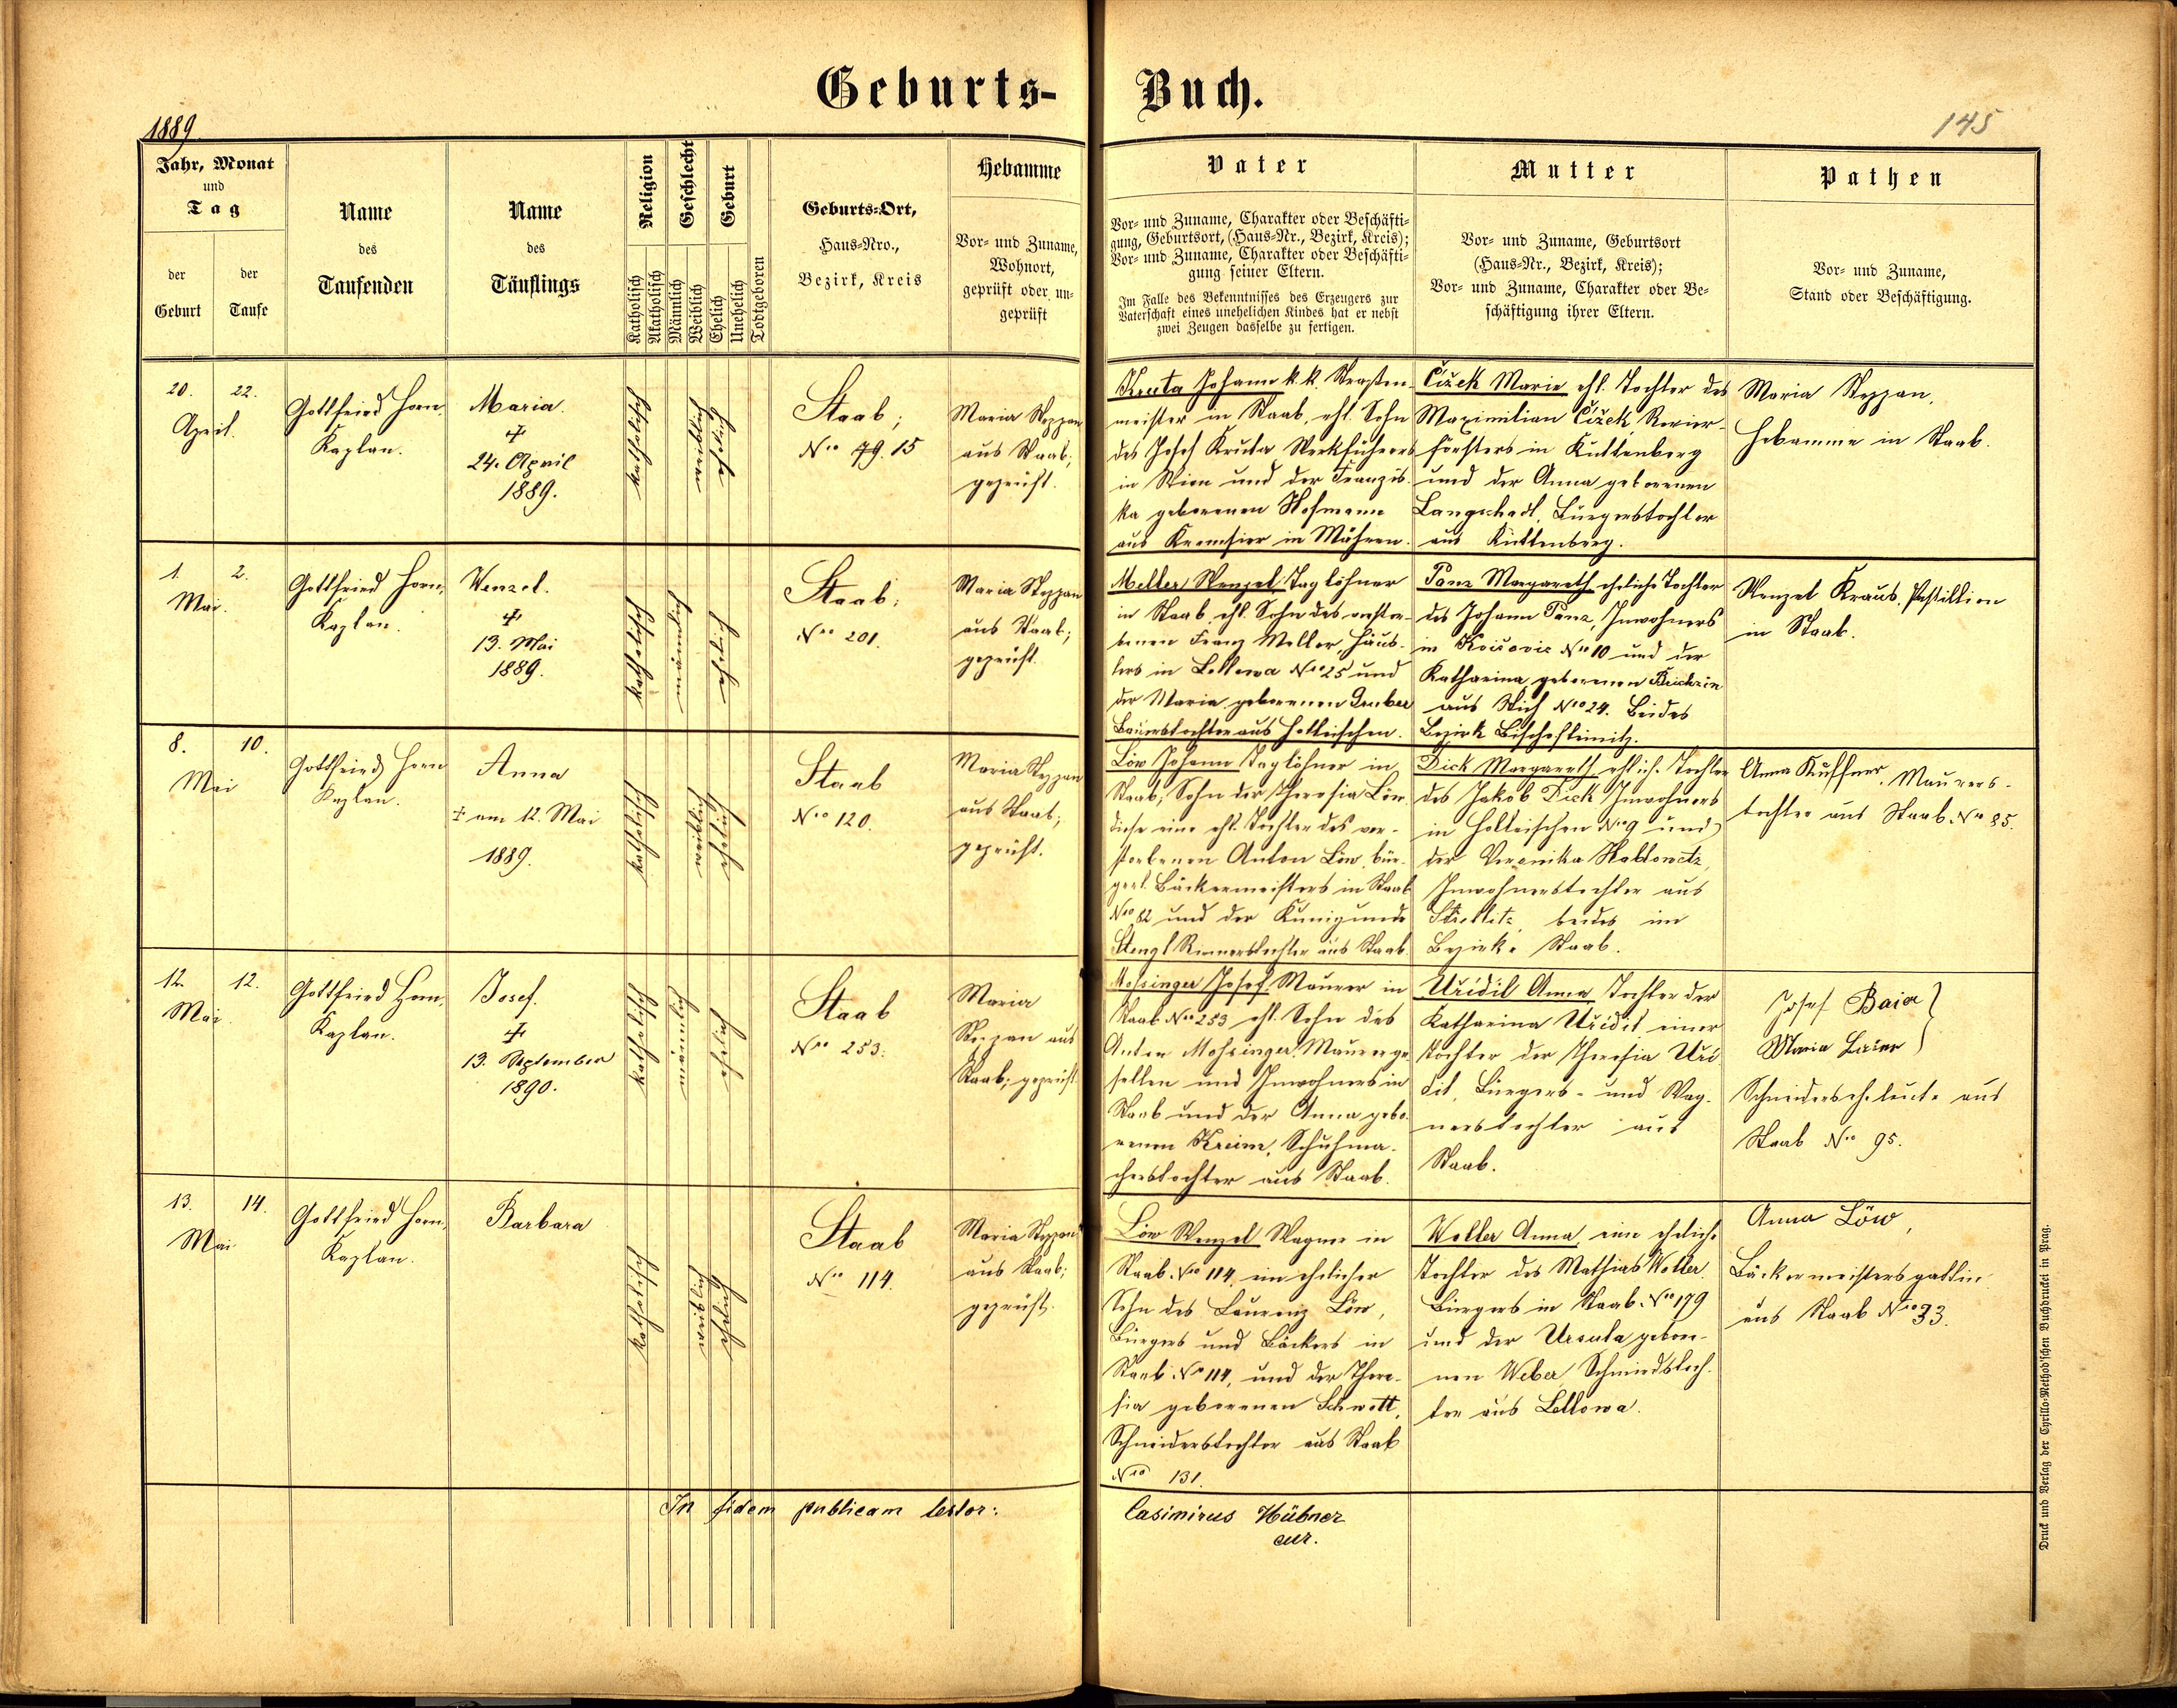 Geburts-Buch.
1889
145
Jahr, Monat
und
Tag
der
Geburt
der
Taufe
Name
des
Taufenden
Name
des
Täuflings
Religion
Katholisch
Akatholisch
Geschlecht
Männlich
Weiblich
Geburt
Ehelich
Unehelich
Todtgeboren
Geburts-Ort,
Haus-Nro.,
Bezirk, Kreis
Hebamme
Vor- und Zuname,
Wohnort,
geprüft oder un-
geprüft
Vater
Vor- und Zuname, Charakter oder Beschäfti-
gung, Geburtsort, (Haus-Nr., Bezirk, Kreis);
Vor- und Zuname, Charakter oder Beschäfti-
gung seiner Eltern.
Im Falle des Bekenntnisses des Erzeugers zur
Vaterschaft eines unehelichen Kindes hat er nebst
zwei Zeugen dasselbe zu fertigen.
Mutter
Vor- und Zuname, Geburtsort
(Haus-Nr., Bezirk, Kreis);
Vor- und Zuname, Charakter oder Be-
schäftigung ihrer Eltern.
Pathen
Vor- und Zuname,
Stand oder Beschäftigung.
20. 22.
April.
Gottfried Horn,
Kaplan.
Maria.
†
24. April
1889.
katholisch
weiblich
ehelich
Staab;
Nro 79. 15
Maria Steppan
aus Staab;
geprüft.
Kruta Johann k. k. Straßen-
meister in Staab, ehl. Sohn
des Josef Kruta Werkführers
in Wien und der Franzis-
ka geborenen Hofmann
aus Kremsier in Mähren.
Čižek Marie ehl. Tochter des
Maximilian Čižek, Revier-
försters in Kuttenberg
und der Anna geborenen
Langschadl, Bürgerstochter
aus Kuttenberg.
Maria Steppan,
Hebamme in Staab.
1. 2.
Mai.
Gottfried Horn,
Kaplan.
Wenzel.
†
13. Mai
1889.
katholisch
männlich
ehelich
Staab;
Nro 201.
Maria Steppan
aus Staab;
geprüft.
Meller Wenzel Taglöhner
in Staab, ehl. Sohn des verstor-
benen Franz Meller, Häus-
lers in Lellowa Nro 25 und
der Maria geborenen Gruber
Bauerstochter aus Holleischen.
Panz Margareth eheliche Tochter
des Johann Panz, Inwohners
in Nro 10 und der
Katharina geborenen
aus Stich Nro 24. Beides
Bezirk Bischofteinitz.
Wenzel Kraus, Postillion
in Staab.
8. 10.
Mai
Gottfried Horn
Kaplan.
Anna
† am 12. Mai
1889.
katholisch
weiblich
ehelich
Staab
Nro 120.
Maria Steppan
aus Staab;
geprüft.
Löw Johann Taglöhner in
Staab; Sohn der Theresia Löw
diese eine ehl. Tochter des ver-
storbenen Anton Löw, bür-
gerl. Bäckermeisters in Staab
Nro 82 und der Kunigunde
Stengl Riemerstochter aus Staab.
Dick Margareth, ehliche Tochter
des Jakob Dick Inwohners
in Holleischen Nro 9 und
der Veronika
Inwohnerstochter aus
beides im
Bezirke Staab.
Anna Kuffner, Maurers-
tochter aus Staab. Nro 85.
12. 12.
Mai.
Gottfried Horn,
Kaplan.
Josef.
†
13. September
1890.
katholisch
männlich
ehelich
Staab
Nro 253.
Maria
Steppan aus
Staab; geprüft.
Mossinger Josef Maurer in
Staab Nro 253 ehl. Sohn des
Anton Mossinger, Maurerge-
sellen und Inwohners in
Staab und der Anna gebo-
renen Kreim, Schuhma-
cherstochter aus Staab.
Uřidil Anna Tochter der
Katharina Uřidil einer
Tochter der Theresia Uři-
dil, Bürgers- und Wag-
nerstochter aus
Staab.
Josef Baier }
Maria Baier
Schneiderseheleute aus
Staab Nro 95.
13. 14.
Mai
Gottfried Horn,
Kaplan.
Barbara
katholisch
weiblich
ehelich
Staab
Nro 114.
Maria Steppan
aus Staab;
geprüft.
Löw Wenzel Wagner in
Staab Nro 114, ein ehelicher
Sohn des Laurenz Löw,
Bürgers und Bäckers in
Staab Nro 114, und der There-
sia geborenen Schwott,
Schneiderstochter aus Staab
Nro 131.
Woller Anna, eine eheliche
Tochter des Mathias Woller
Bürgers in Staab Nro 179
und der Ursula gebore-
nen Weber, Schmiedstoch-
ter aus Lellowa.
Anna Löw,
Bäckermeistersgattin
aus Staab Nro 93.
In fidem publicam testor:
Casimirus Hübner
cur.
Druck und Verlag der Cyrillo-Method'schen Buchdruckei in Prag.